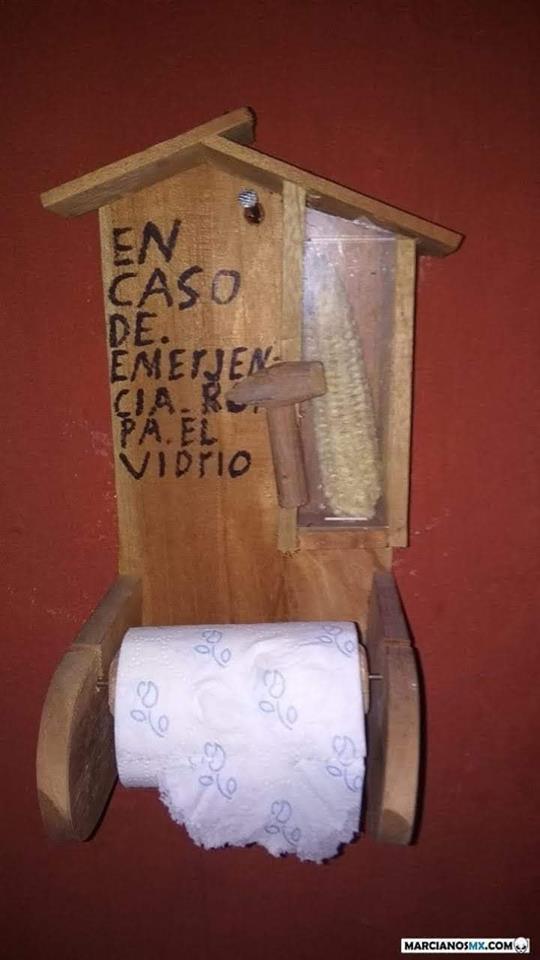 EN
CASO
DE.
EMERJEN-
CIA. RO
PA. EL
VIDrIO
MARCIANOSMX.COM